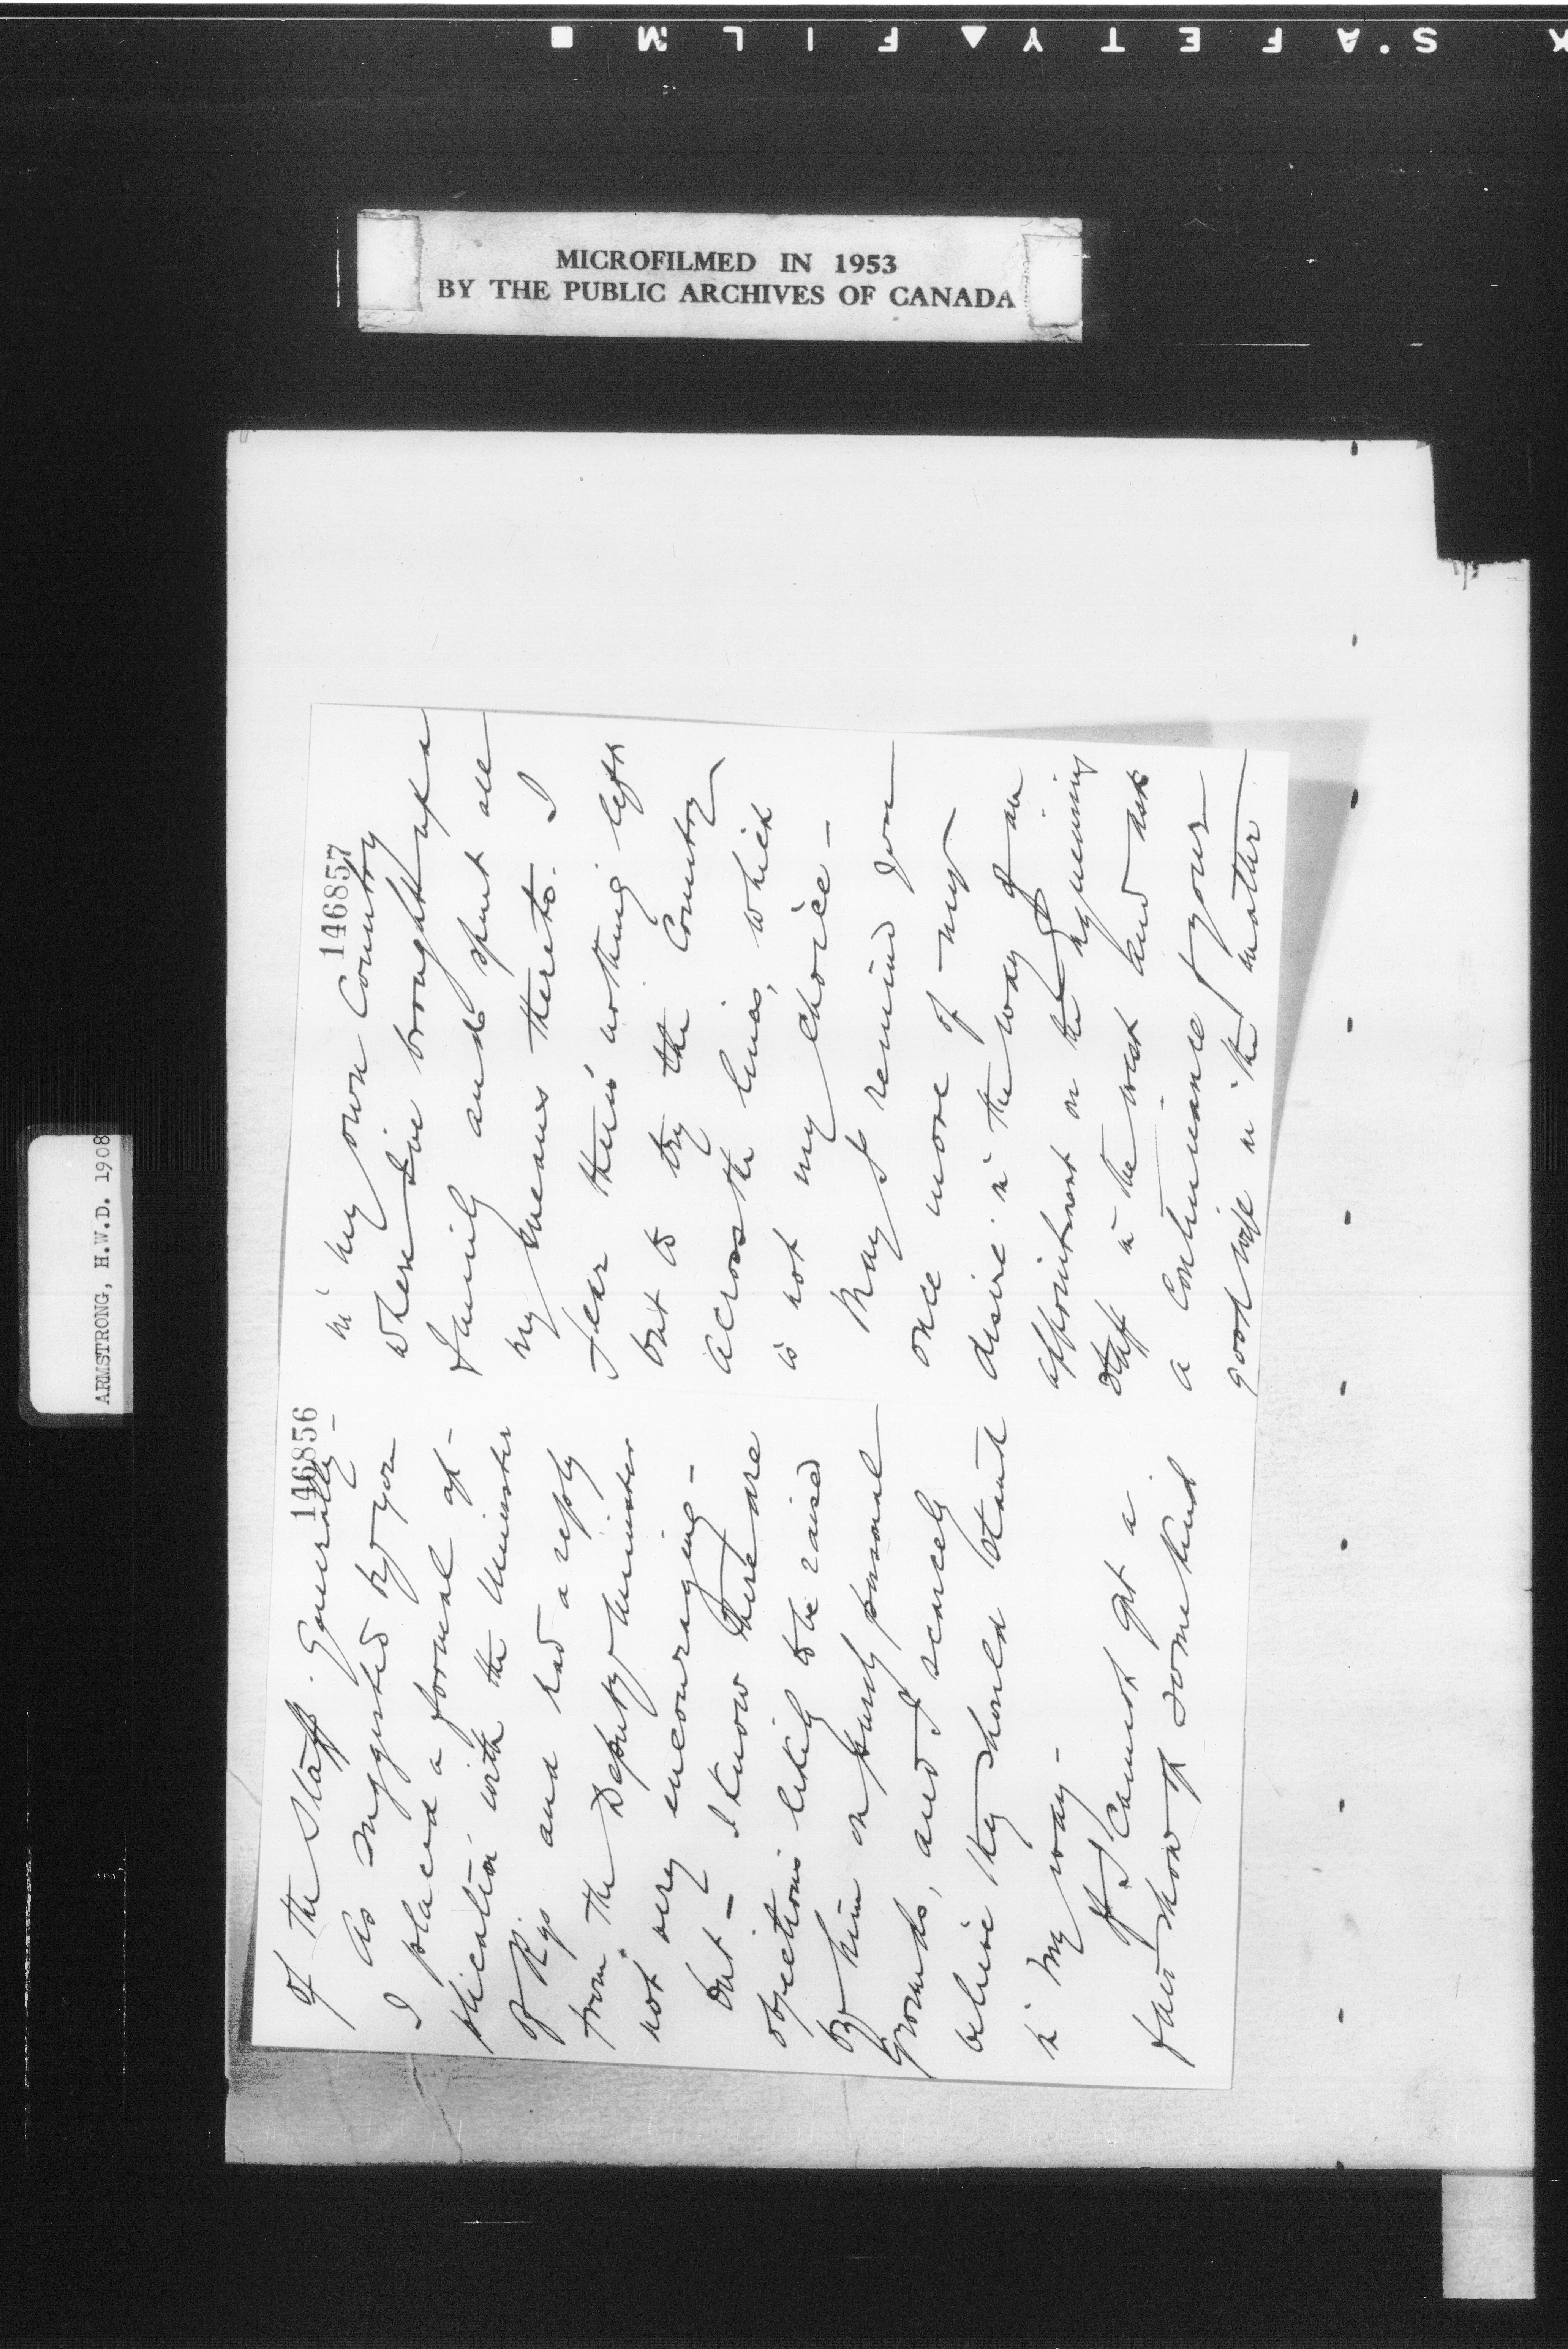 S·AFETY▲FILM■
MICROFILMED IN 1953
BY THE PUBLIC ARCHIVES OF CANADA
ARMSTRONG, H.W.D. 1908
146856
of the Staff. Generally—
As suggested by you
I placed a formal ap-
plication with the Minister
of Rys and had a reply
from the Deputy Minister
not very encouraging—
but— I know there are
objections likely to be raised
by him on purely personal
grounds, and I scarcely
believe they should stand
in my way—
If I cannot get a
fair show of some kind
146857
in my own Country
where I've brought up a
family and spent all
my means thereto. I
fear there's nothing left
but to try the Country
across the lines, which
is not my choice—
May I remind you
once more of my
desire in the way of an
appointment on the Engineering
Staff in the west and ask
a continuance of your
good will in the matter